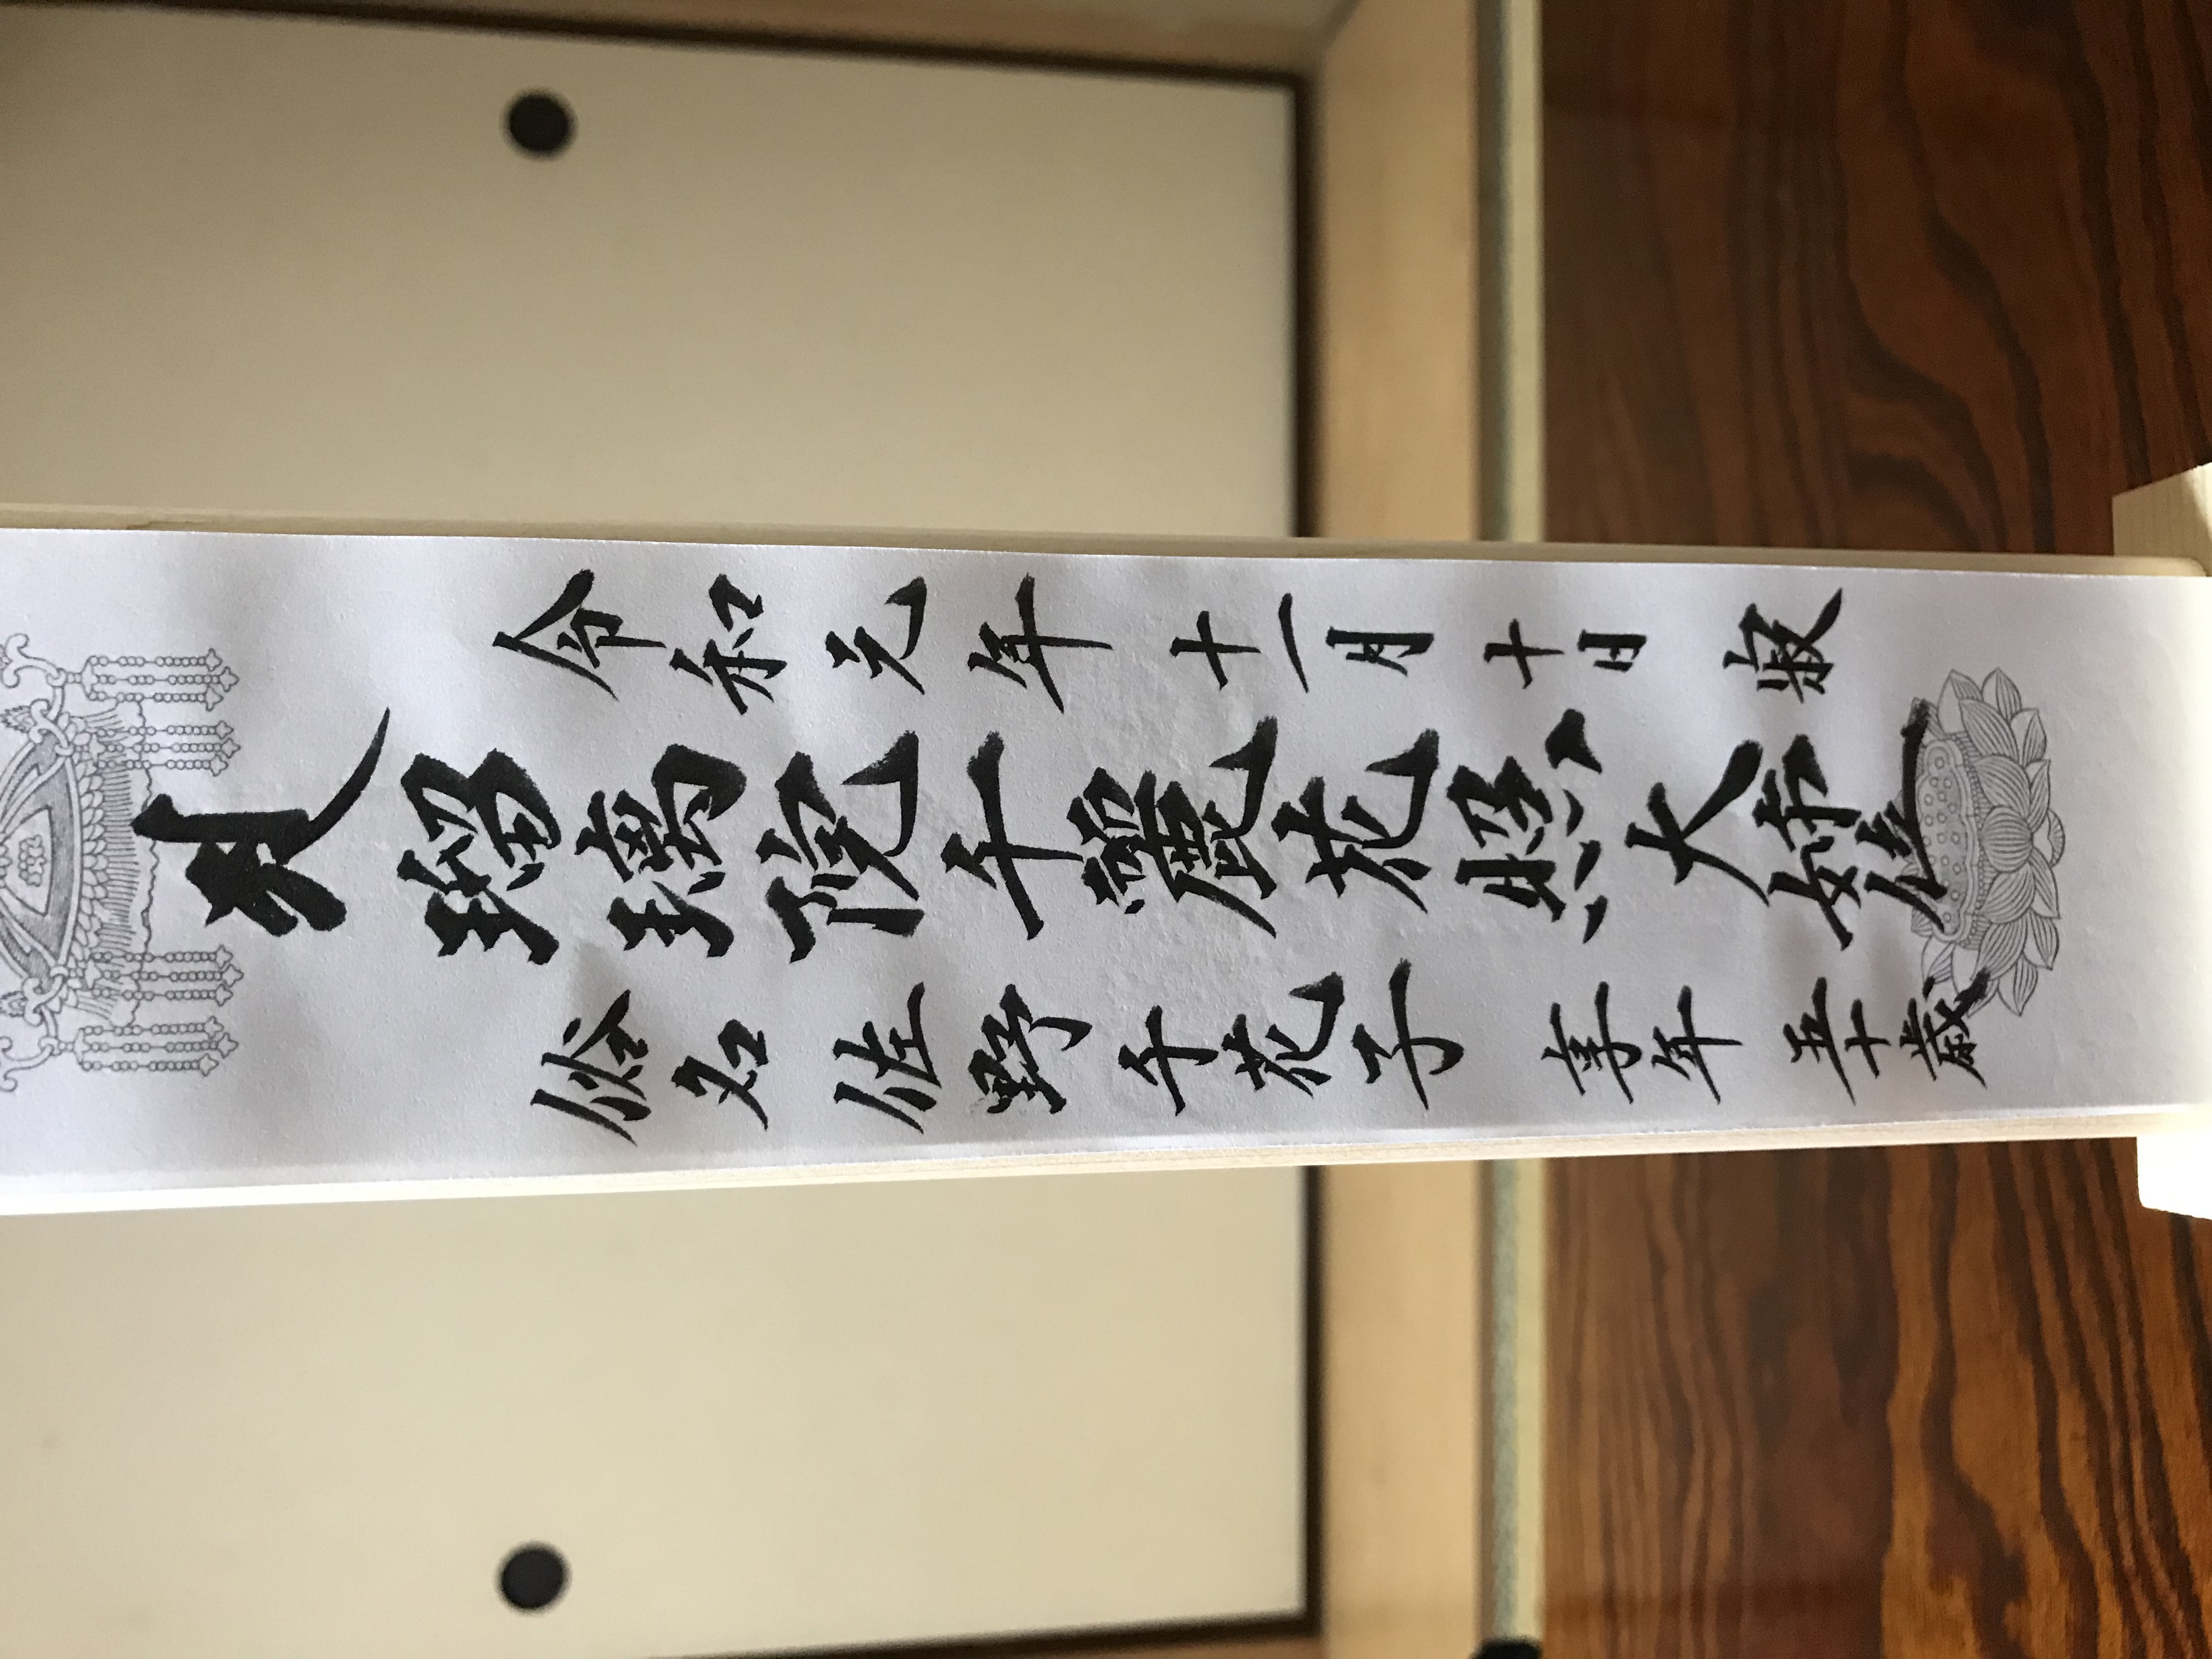 令和元年十一月十日 寂
瑠璃院千麗花照大姉位
俗名 佐野千花子 享年 五十歳